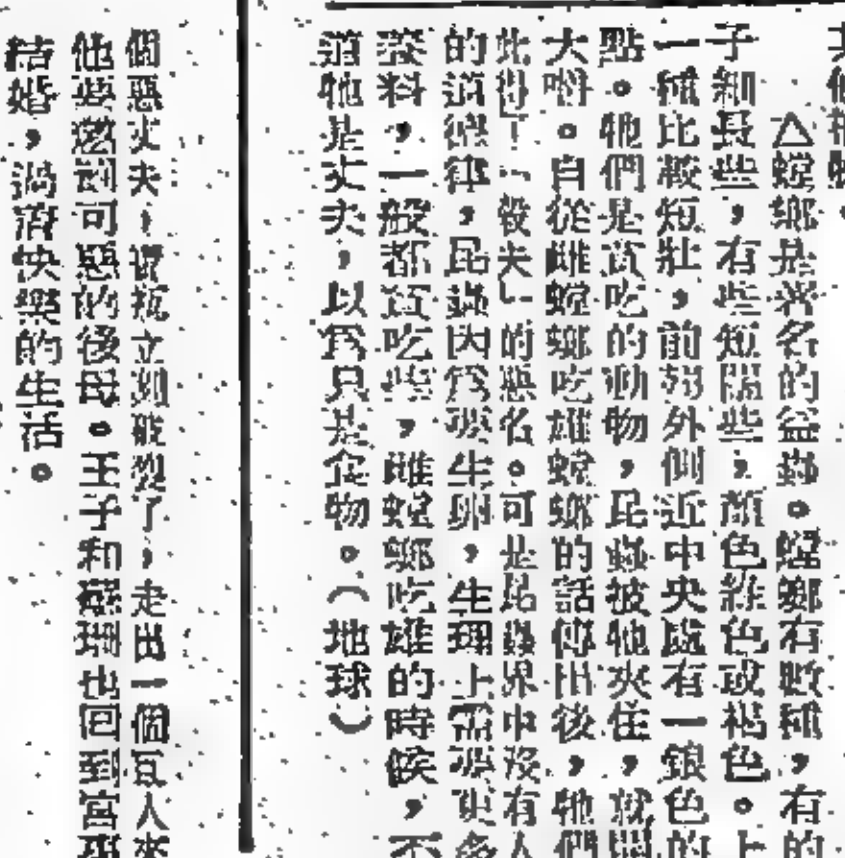 △螳螂是著名的益蟲。螳螂有數種，有的
子細長些，有些短闊些，顏色綠色或褐色。上
一種比較短壯，前翅外側近中央處有一銀色的
點。牠們是貪吃的動物，昆蟲被牠夾住，就開
大嚼。自從雌螳螂吃雄螳螂的話傳出後，牠們
此得了「殺夫」的惡名。可是昆蟲界中沒有人
的道德律，昆蟲因爲要生卵，生理上需要更多
養料，一般都貪吃些，雌螳螂吃雄的時候，不
道牠是丈夫，以爲只是食物。（地球）
個惡丈夫，瓶立刻破裂了，走出一個巨人來
他要懲罰可惡的後母。王子和蘇珊也回到宮
結婚，過着快樂的生活。